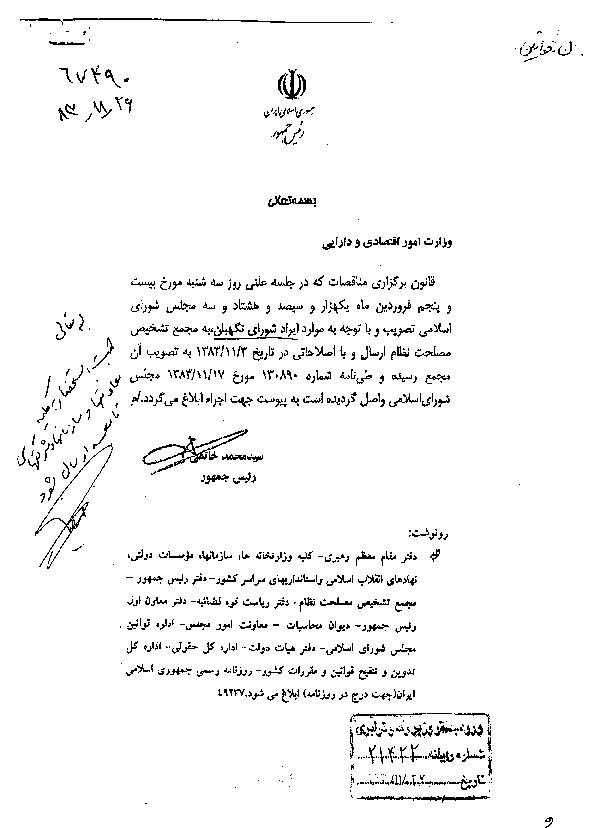 ۶۷۴۹۰
۸۳/۱۱/۲۶
جمهوری اسلامی ایران
رئیس جمهور
بسمه‌تعالی
وزارت امور اقتصادی و دارایی
قانون برگزاری مناقصات که در جلسه علنی روز سه شنبه مورخ بیست
و پنجم فروردین ماه یکهزار و سیصد و هشتاد و سه مجلس شورای
اسلامی تصویب و با توجه به موارد ایراد شورای نگهبان، به مجمع تشخیص
مصلحت نظام ارسال و با اصلاحاتی در تاریخ ۱۳۸۳/۱۱/۳ به تصویب آن
مجمع رسیده و طی‌نامه شماره ۱۳۰۸۹۰ مورخ ۱۳۸۳/۱۱/۱۷ مجلس
شورای‌اسلامی واصل گردیده است به پیوست جهت اجراء ابلاغ می‌گردد./م
سیدمحمد خاتمی
رئیس جمهور
رونوشت:
دفتر مقام معظم رهبری- کلیه وزارتخانه ها، سازمانها، مؤسسات دولتی،
نهادهای انقلاب اسلامی واستانداریهای سراسر کشور- دفتر رئیس جمهور -
مجمع تشخیص مصلحت نظام - دفتر ریاست قوه قضائیه- دفتر معاون اول
رئیس جمهور- دیوان محاسبات - معاونت امور مجلس- اداره قوانین
مجلس شورای اسلامی- دفتر هیات دولت- اداره کل حقوقی- اداره کل
تدوین و تنقیح قوانین و مقررات کشور- روزنامه رسمی جمهوری اسلامی
ایران(جهت درج در روزنامه) ابلاغ می شود.۴۹۲۳۷
به تعالی
جهت استحضار به کلیه
تابعه ارسال شود
ورود به دفتر وزیر
شماره
تاریخ